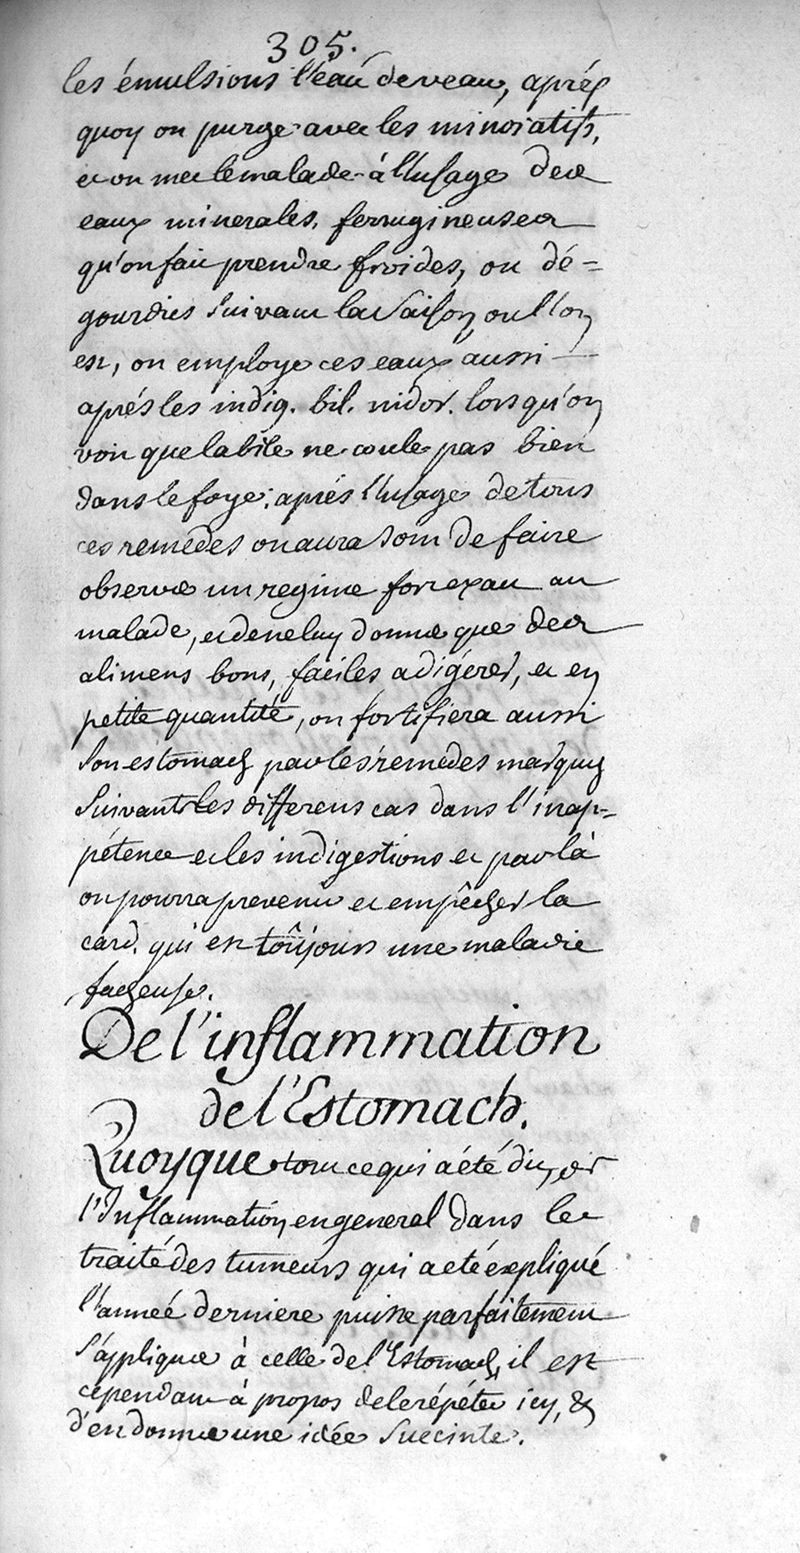 305.
les émulsions l'eau de veau, aprés
quoy on purge avec les minoratifs,
et on met le malade à l'usage des
eaux minerales, ferrugineuses
qu'on fait prendre froides, ou dé=
gourdies suivant la saison, ou l'on
est, on employe ces eaux aussi
aprés les indig. bil. nidor. lorsqu'on
voit que la bile ne coule pas bien
dans le foye: aprés l'usage de tous
ces remedes on aura soin de faire
observer un regime fort exact au
malade, et de ne luy donner que des
alimens bons, faciles a digérer, et en
petite quantité, on fortifiera aussi
son estomach par les remedes marqués
suivants les differens cas dans l'inap=
pétence et les indigestions et par là
on pourra prevenir et empêcher la
card. qui est toûjours une maladie
facheuse.
De l'inflammation
de l'Estomach.
Quoyque tout ce qui a été dit, de
l'Inflammation en general dans le
traité des tumeurs qui a eté expliqué
l'année derniere puisse parfaitement
s'appliquer à celle de l'Estomach, il est
cependant à propos de le répéter icy, &
d'en donner une idée succinte.